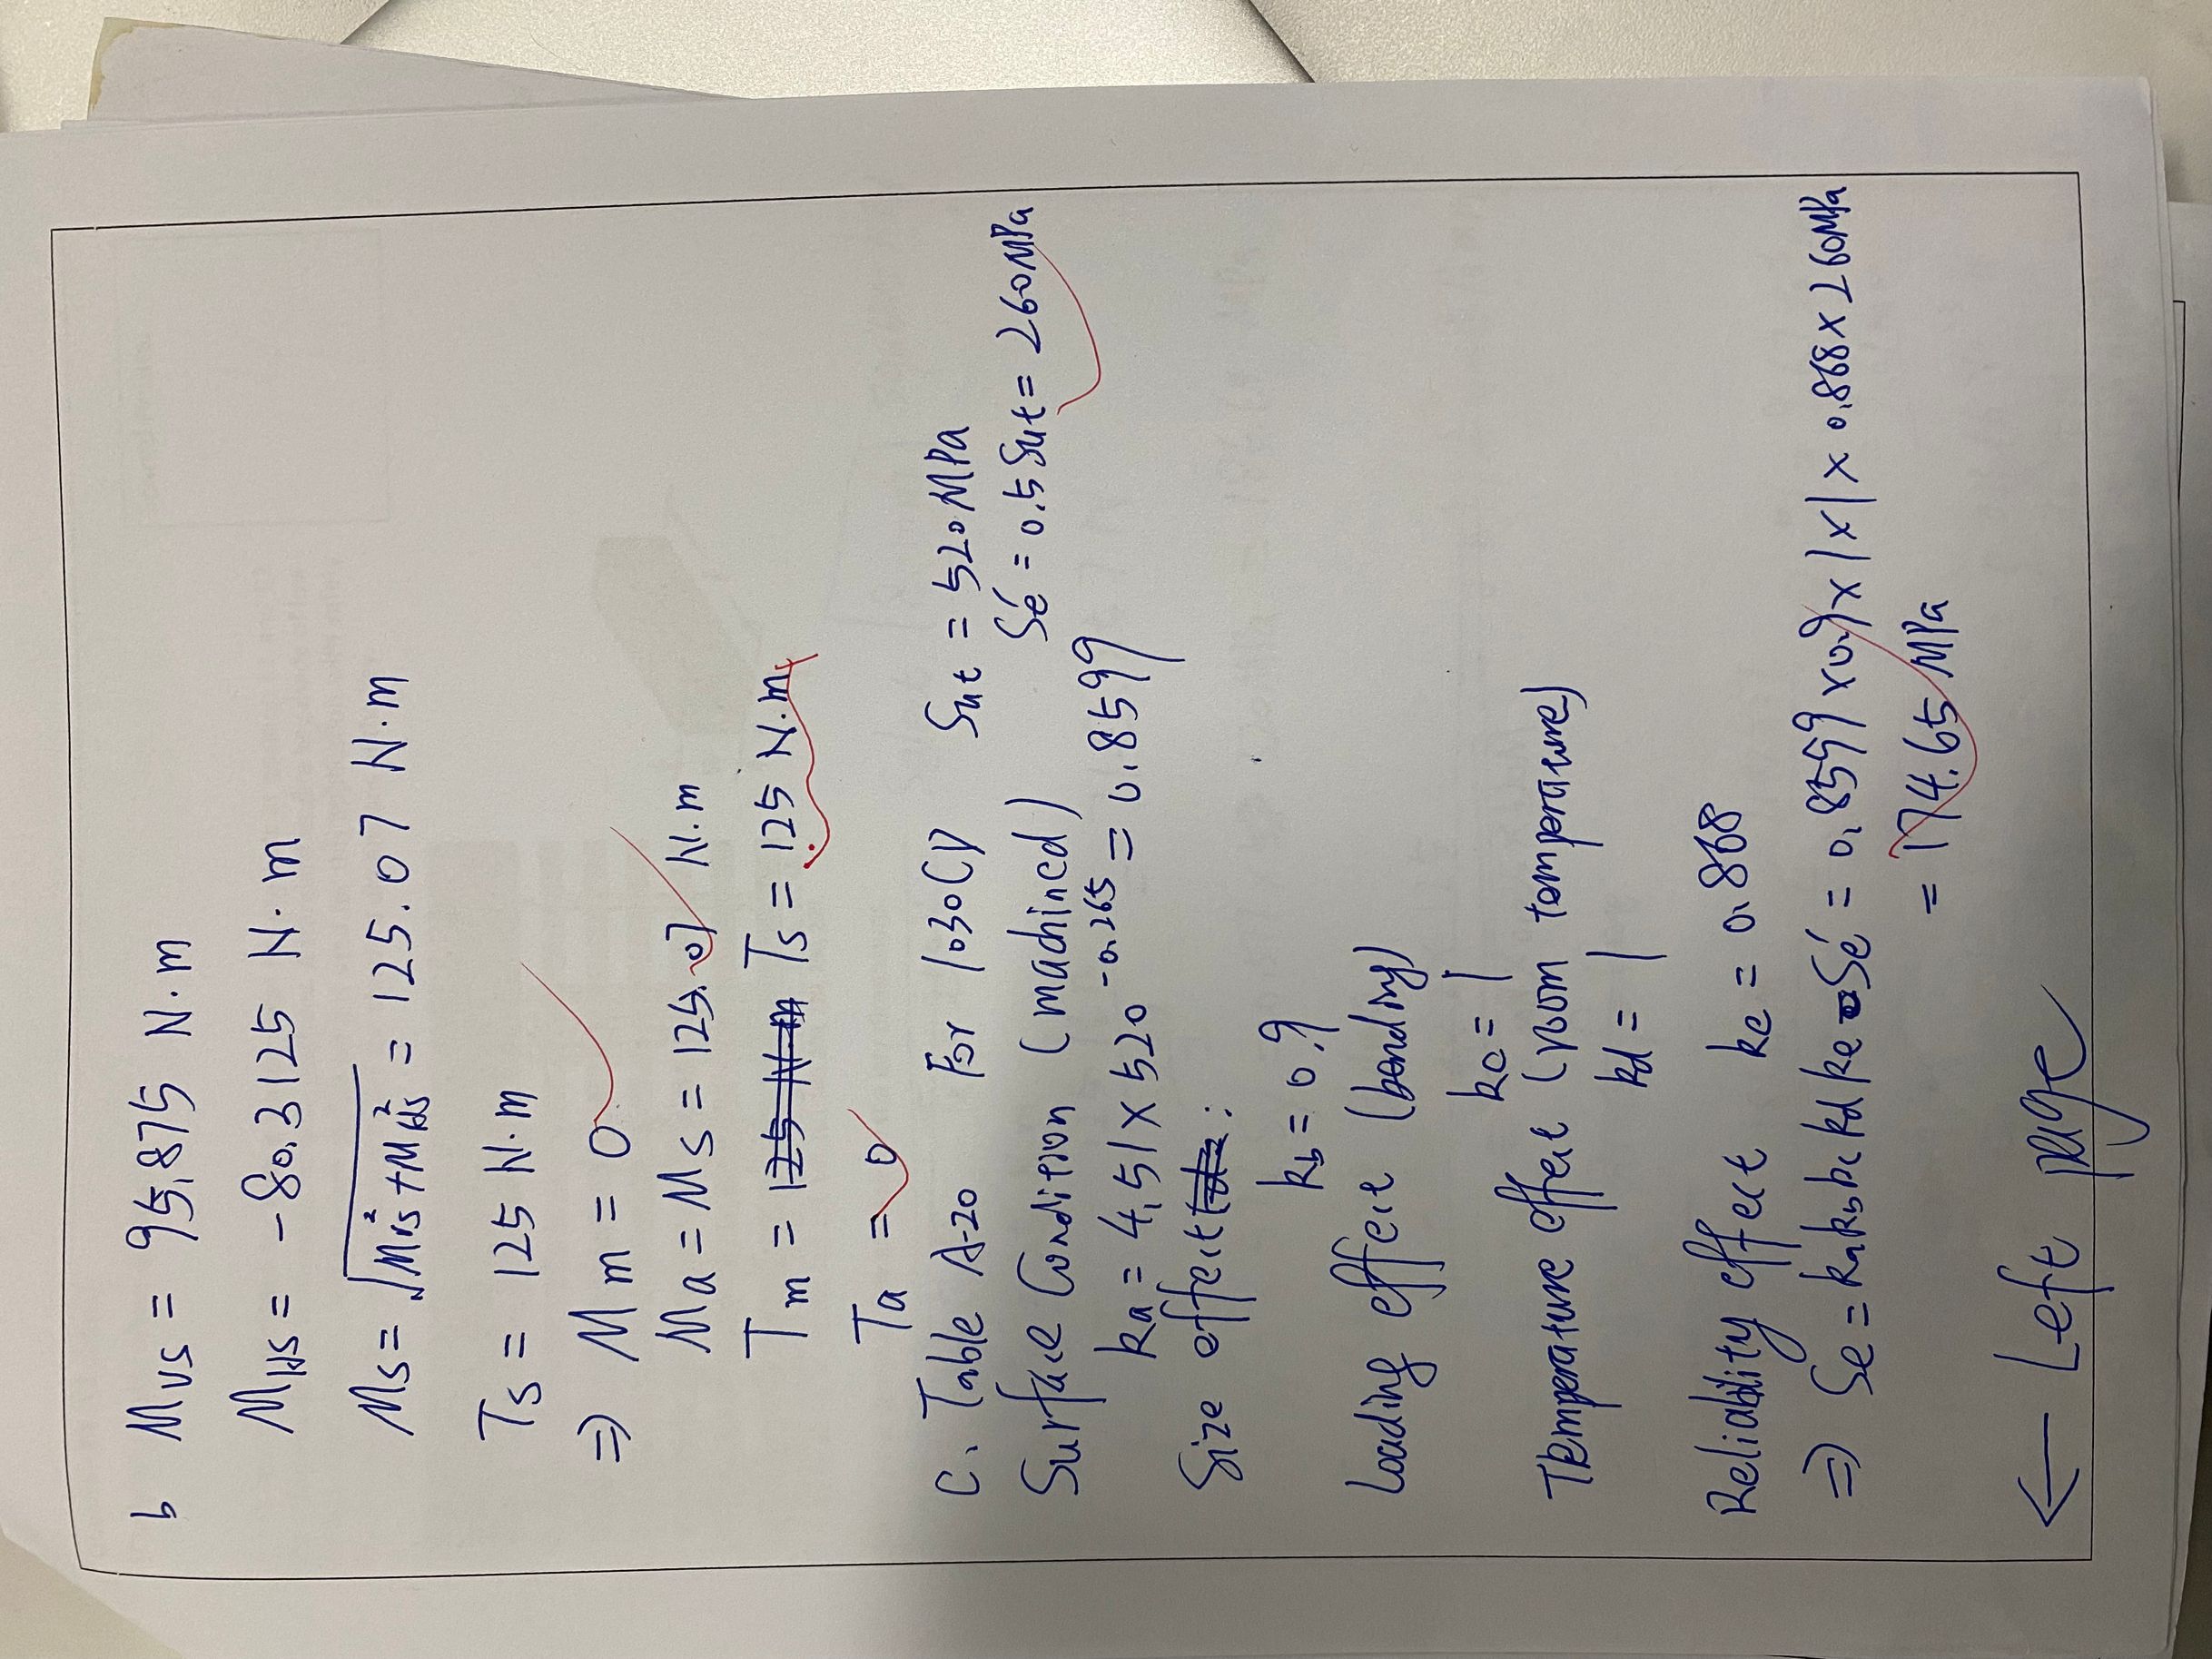 b M_VS = 95.875 N·m
M_HS = -80.3125 N·m
M_S = √(M_VS² + M_HS²) = 125.07 N·m
T_S = 125 N·m
⇒ M_m = 0
M_a = M_S = 125.07 N.m
T_m = 125 N·m T_S = 125 N.m
T_a = 0
C. Table A-20 For 1030CD Sut = 520MPa
Sé = 0.5 Sut = 260MPa
Surface Condition (machined)
ka = 4.51 × 520^-0.265 = 0.8599
Size effect :
kb = 0.9
Loading effect (bending)
kc = 1
Temperature effect (room temperature)
kd = 1
Reliability effect ke = 0.868
⇒ Se = ka kb kc kd ke Sé = 0.8599 × 0.9 × 1 × 1 × 0.868 × 260MPa
= 174.65 MPa
← Left page